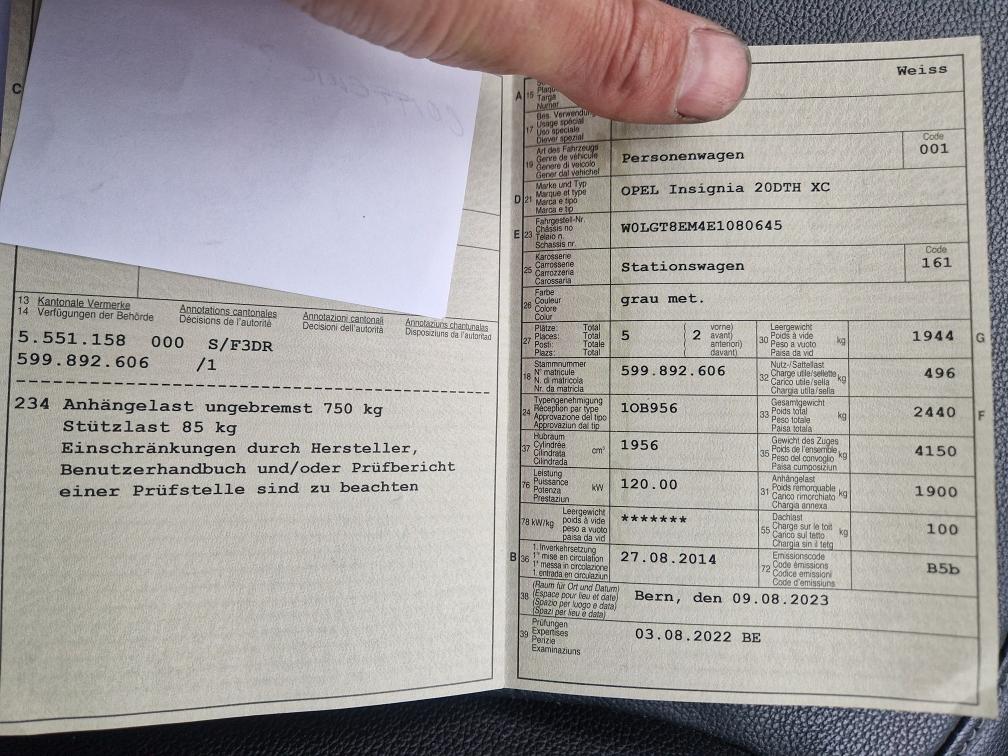 C
13 Kantonale Vermerke Annotations cantonales Annotazioni cantonali Annotaziuns chantunalas
14 Verfügungen der Behörde Décisions de l'autorité Decisioni dell'autorità Disposiziuns da l'autoritad
5.551.158 000 S/F3DR
599.892.606 /1
234 Anhängelast ungebremst 750 kg
Stützlast 85 kg
Einschränkungen durch Hersteller,
Benutzerhandbuch und/oder Prüfbericht
einer Prüfstelle sind zu beachten
Weiss
A 15
Plaque
Targa
Numer
17
Bes. Verwendung
Usage spécial
Uso speciale
Diever spezial
19
Art des Fahrzeugs
Genre de véhicule
Genere di veicolo
Gener dal vehichel
Personenwagen
Code
001
D 21
Marke und Typ
Marque et type
Marca e tipo
Marca e tip
OPEL Insignia 20DTH XC
E 23
Fahrgestell-Nr.
Châssis no
Telaio n.
Schassis nr.
W0LGT8EM4E1080645
25
Karosserie
Carrosserie
Carrozzeria
Carossaria
Stationswagen
Code
161
26
Farbe
Couleur
Colore
Colur
grau met.
27
Plätze: Total
Places: Total
Posti: Totale
Plazs: Total
5
( 2 vorne)
avant)
anteriori)
davant)
30
Leergewicht
Poids à vide
Peso a vuoto
Paisa da vid
kg
1944
G
18
Stammnummer
N° matricule
N. di matricola
Nr. da matricla
599.892.606
32
Nutz-/Sattellast
Charge utile/sellette
Carico utile/sella
Chargia utila/sella
kg
496
24
Typengenehmigung
Réception par type
Approvazione del tipo
Approvaziun dal tip
1OB956
33
Gesamtgewicht
Poids total
Peso totale
Paisa totala
kg
2440
F
37
Hubraum
Cylindrée
Cilindrata
Cilindrada
cm³
1956
35
Gewicht des Zuges
Poids de l'ensemble
Peso del convoglio
Paisa cumposiziun
kg
4150
76
Leistung
Puissance
Potenza
Prestaziun
kW
120.00
31
Anhängelast
Poids remorquable
Carico rimorchiato
Chargia annexa
kg
1900
78 kW/kg
Leergewicht
poids à vide
peso a vuoto
paisa da vid
*******
55
Dachlast
Charge sur le toit
Carico sul tetto
Chargia sin il tetg
kg
100
B 36
1. Inverkehrsetzung
1re mise en circulation
1a messa in circolazione
1. entrada en circulaziun
27.08.2014
72
Emissionscode
Code émissions
Codice emissioni
Code d'emissiuns
B5b
38
(Raum für Ort und Datum)
(Espace pour lieu et date)
(Spazio per luogo e data)
(Spazi per lieu e data)
Bern, den 09.08.2023
39
Prüfungen
Expertises
Perizie
Examinaziuns
03.08.2022 BE